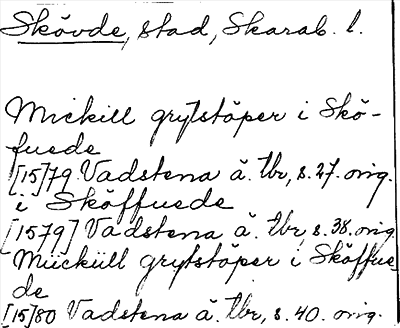 Skövde, stad, Skarab. l.
Mickill grytstöper i Skö-
fuede
[15]79 Vadstena ä. tbr, s. 27. orig.
i Sköffuede
[1579] Vadstena ä. tbr, s. 38. orig
Müickiill grytstöper i Sköffue
de
[15]80 Vadstena ä. tbr, s. 40. orig.